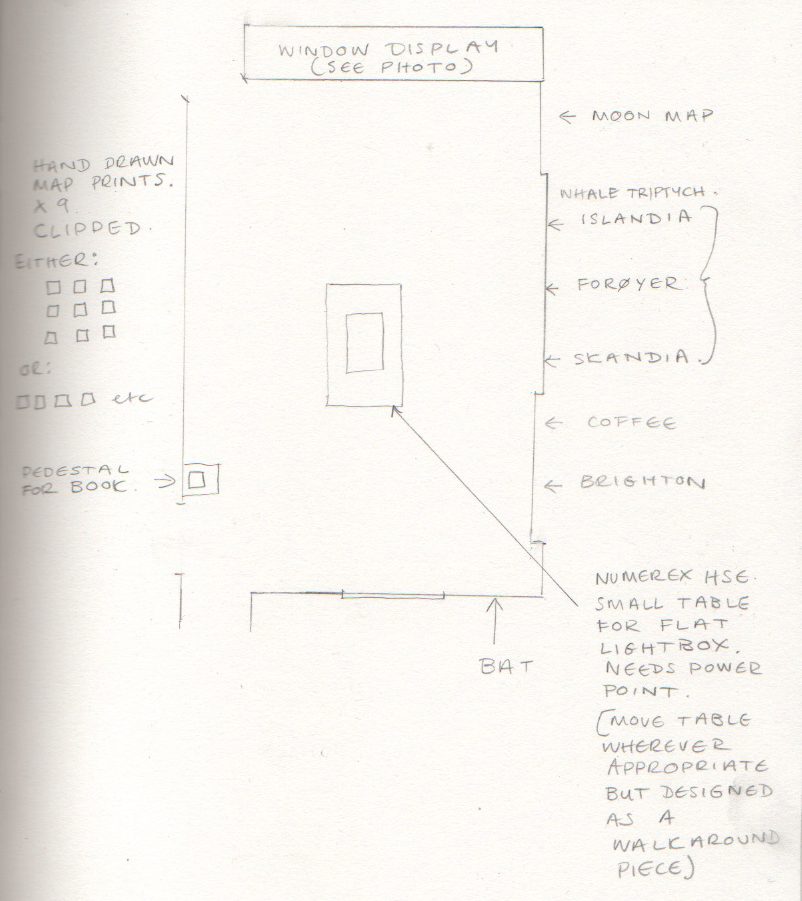 WINDOW DISPLAY
(SEE PHOTO)
← MOON MAP
HAND DRAWN
MAP PRINTS.
X 9.
CLIPPED.
EITHER:
OR:
etc
PEDESTAL
FOR BOOK. →
WHALE TRIPTYCH.
← ISLANDIA
← FORØYER
← SKANDIA.
← COFFEE
← BRIGHTON
BAT
NUMEREX HSE.
SMALL TABLE
FOR FLAT
LIGHTBOX.
NEEDS POWER
POINT.
(MOVE TABLE
WHEREVER
APPROPRIATE
BUT DESIGNED
AS A
WALKAROUND
PIECE)